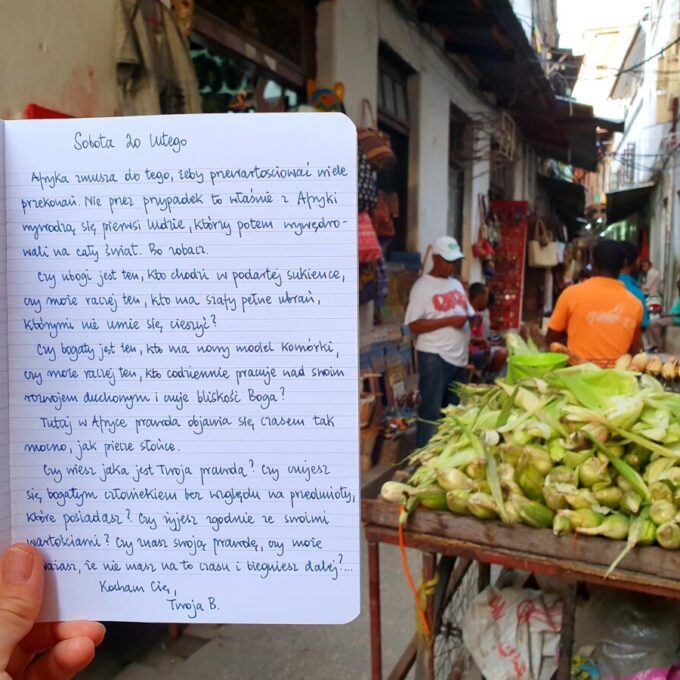 Sobota 20 lutego
Afryka zmusza do tego, żeby przewartościować wiele
przekonań. Nie przez przypadek to właśnie z Afryki
wyrodzą się pierwsi ludzie, którzy potem wywędro-
wali na cały świat. Bo zobacz.
Czy ubogi jest ten, kto chodzi w podartej sukience,
czy może raczej ten, kto ma szafy pełne ubrań,
którymi nie umie się cieszyć?
Czy bogaty jest ten, kto ma nowy model komórki,
czy może raczej ten, kto codziennie pracuje nad swoim
rozwojem duchowym i czuje bliskość Boga?
Tutaj w Afryce prawda objawia się czasem tak
mocno, jak piecze słońce.
Czy wiesz jaka jest Twoja prawda? Czy czujesz
się bogatym człowiekiem bez względu na przedmioty,
które posiadasz? Czy żyjesz zgodnie ze swoimi
wartościami? Czy znasz swoją prawdę, czy może
że nie masz na to czasu i biegniesz dalej?...
Kocham Cię,
Twoja B.